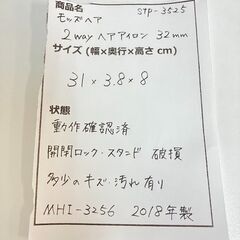 商品名
STP-3525
モッズヘア
2way ヘアアイロン 32mm
サイズ (幅×奥行×高さ cm)
31×3.8×8
状態
動作確認済
開閉ロック・スタンド 破損
多少のキズ・汚れ有り
MHI-3256 2018年製